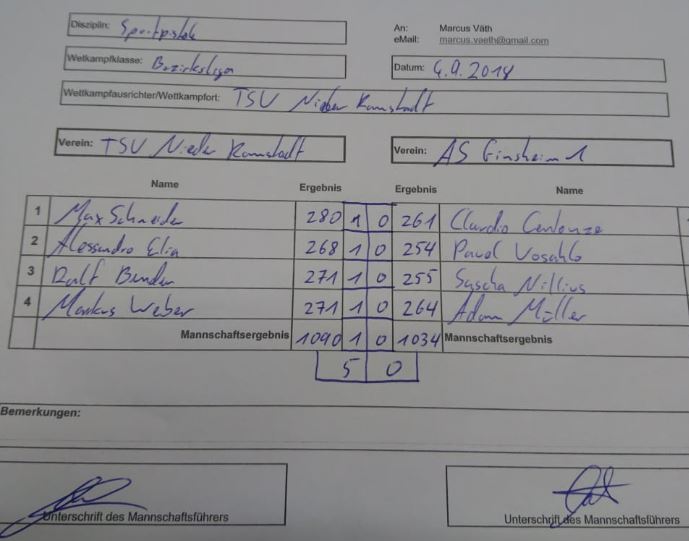 Disziplin: Sportpistole
An: Marcus Väth
eMail: marcus.vaeth@gmail.com
Wetkampfklasse: Bezirksliga
Datum: 6.9.2018
Wettkampfausrichter/Wettkampfort: TSV Nieder Ramstadt
Verein: TSV Nieder Ramstadt
Verein: AS Ginsheim 1
Name Ergebnis Ergebnis Name
1 Max Schneider 280 1 0 261 Claudio
2 Alessandro Elia 268 1 0 254 Pavol Vosahlo
3 Ralf Bender 271 1 0 255 Sascha Nillius
4 Markus Weber 271 1 0 264 Adam Müller
Mannschaftsergebnis 1090 1 0 1034 Mannschaftsergebnis
5 0
Bemerkungen:
Unterschrift des Mannschaftsführers
Unterschrift des Mannschaftsführers